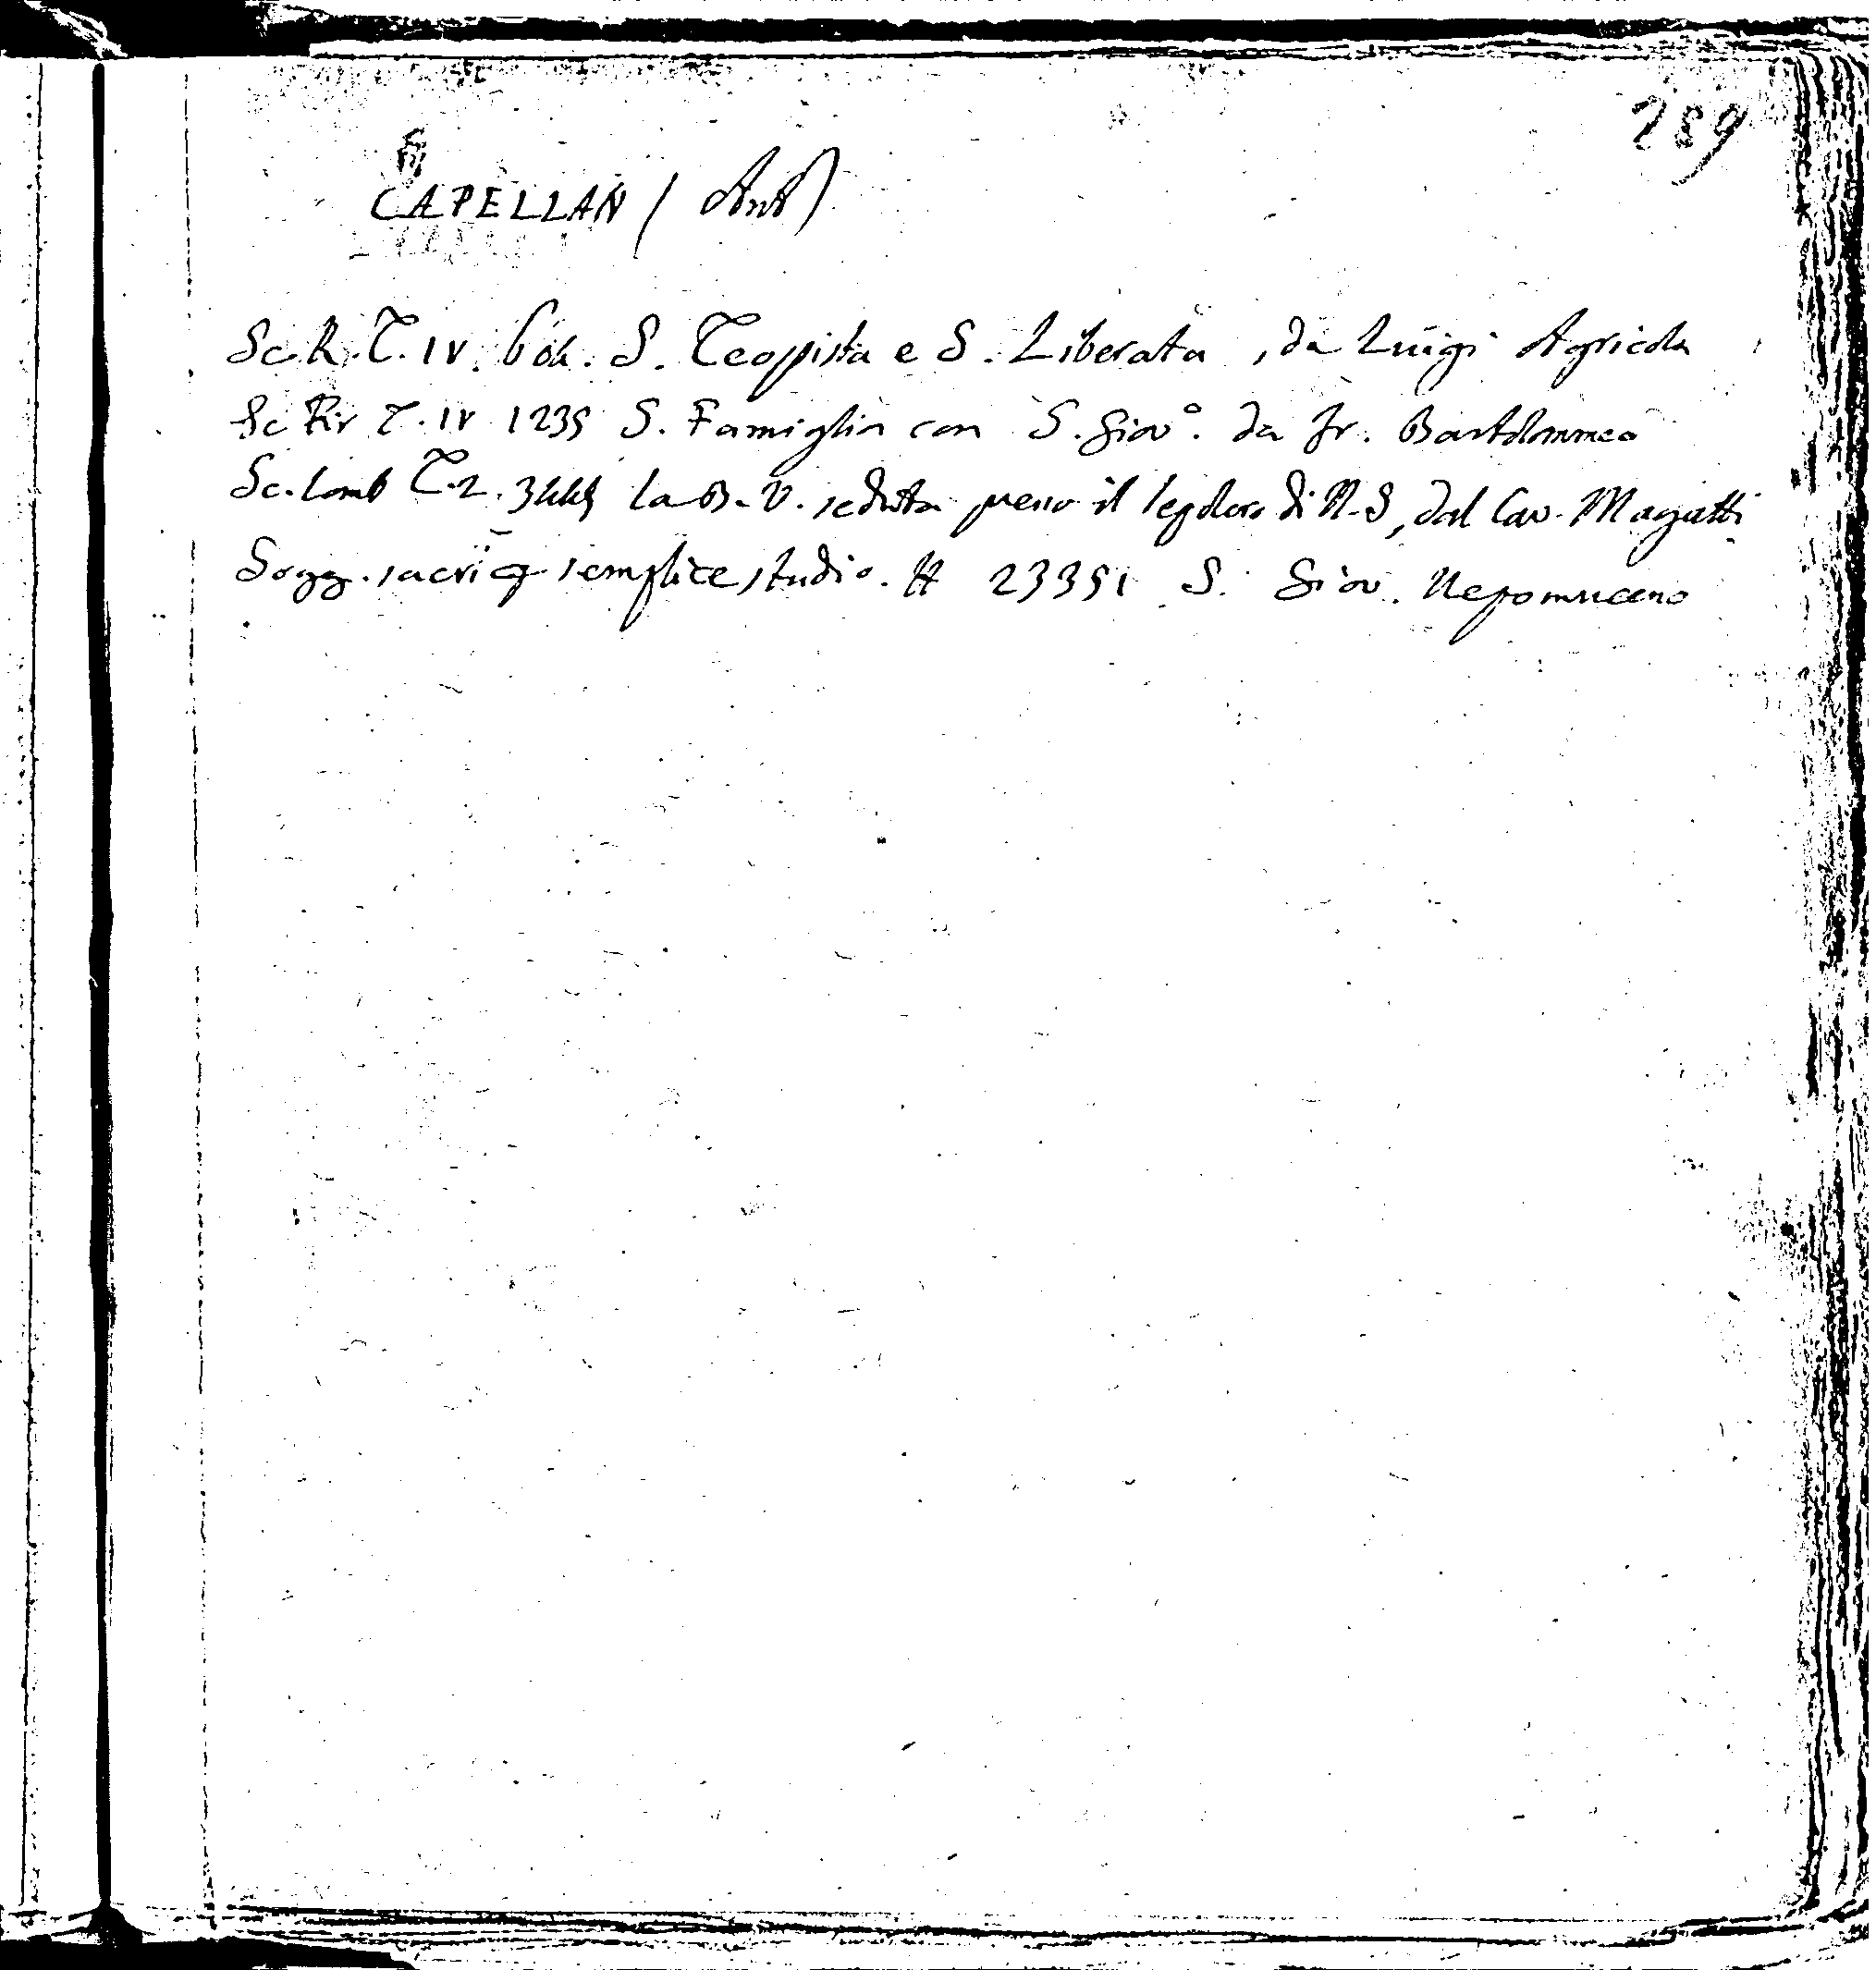 289
CAPELLAN (Ant)
Sc. R. T. IV. 604. S. Teopista e S. Liberata, da Luigi Agricola
Sc Fir T. IV 1235 S. Famiglia con S. Giov°. da Fr. Bartolommeo
Sc. Lomb T. 2. 3445 La B. V. seduta presso il sepolcro di N. S, dal Cav. Magatti
Sogg. sacri semplice studio. H 23351 S. Giov. Nepomuceno